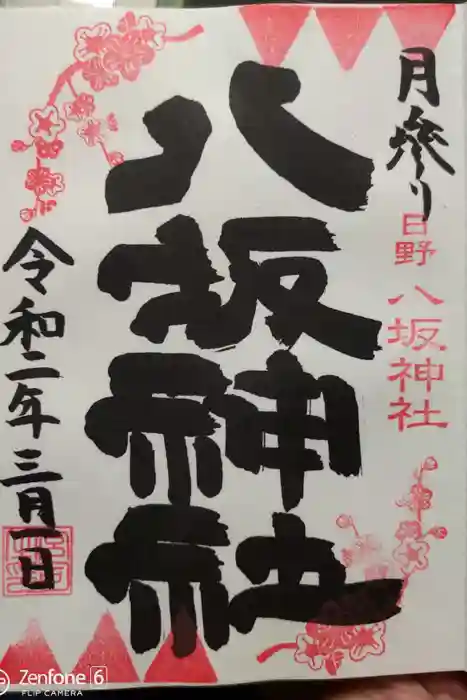 月参り
日野 八坂神社
八坂神社
令和二年三月一日
Zenfone 6
FLIP CAMERA